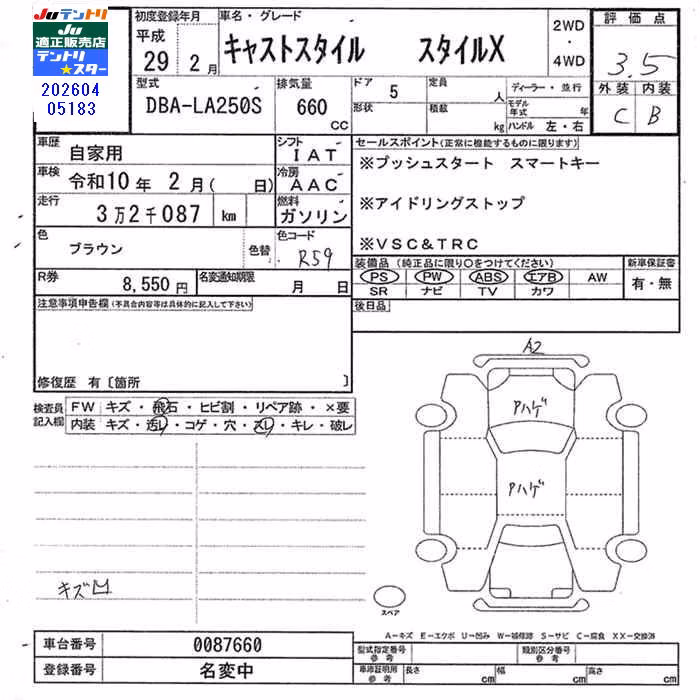 JU テントリ
JU
適正販売店
テントリ
★スター
202604
05183
初度登録年月
平成
29年 2月
車名・グレード
キャストスタイル スタイルX
2WD
・
4WD
評価点
3.5
外装 内装
C B
型式
DBA-LA250S
排気量
660
CC
ドア 5
形状
定員 人
積数 kg
ディーラー・並行
モデル年式 年
ハンドル 左・右
車歴 自家用
シフト IAT
車検 令和10年 2月( 日)
冷房 AAC
走行 3万2千087 km
燃料 ガソリン
色 ブラウン 色替
色コード R59
R券 8,550円
名変通知期限 月 日
セールスポイント(正常に機能するものに限ります)
※プッシュスタート スマートキー
※アイドリングストップ
※VSC&TRC
装備品(純正品に限り○をつけてください)
PS PW ABS エアB AW
SR ナビ TV カワ
新車保証書
有・無
後日品
注意事項申告欄(不具合内容等は具体的に記入して下さい)
修復歴 有〔箇所 〕
検査員記入欄
FW キズ・飛石・ヒビ割・リペア跡・×要
内装 キズ・汚レ・コゲ・穴・スレ・キレ・破レ
A2
Pハゲ
Pハゲ
キズ凹
スペア
A-キズ E-エクボ U-凹み W-補修跡 S-サビ C-腐食 XX-交換済
車台番号 0087660
登録番号 名変中
型式指定番号 参考
類別区分番号 参考
車庫証明用 参考
長さ cm
幅 cm
高さ cm